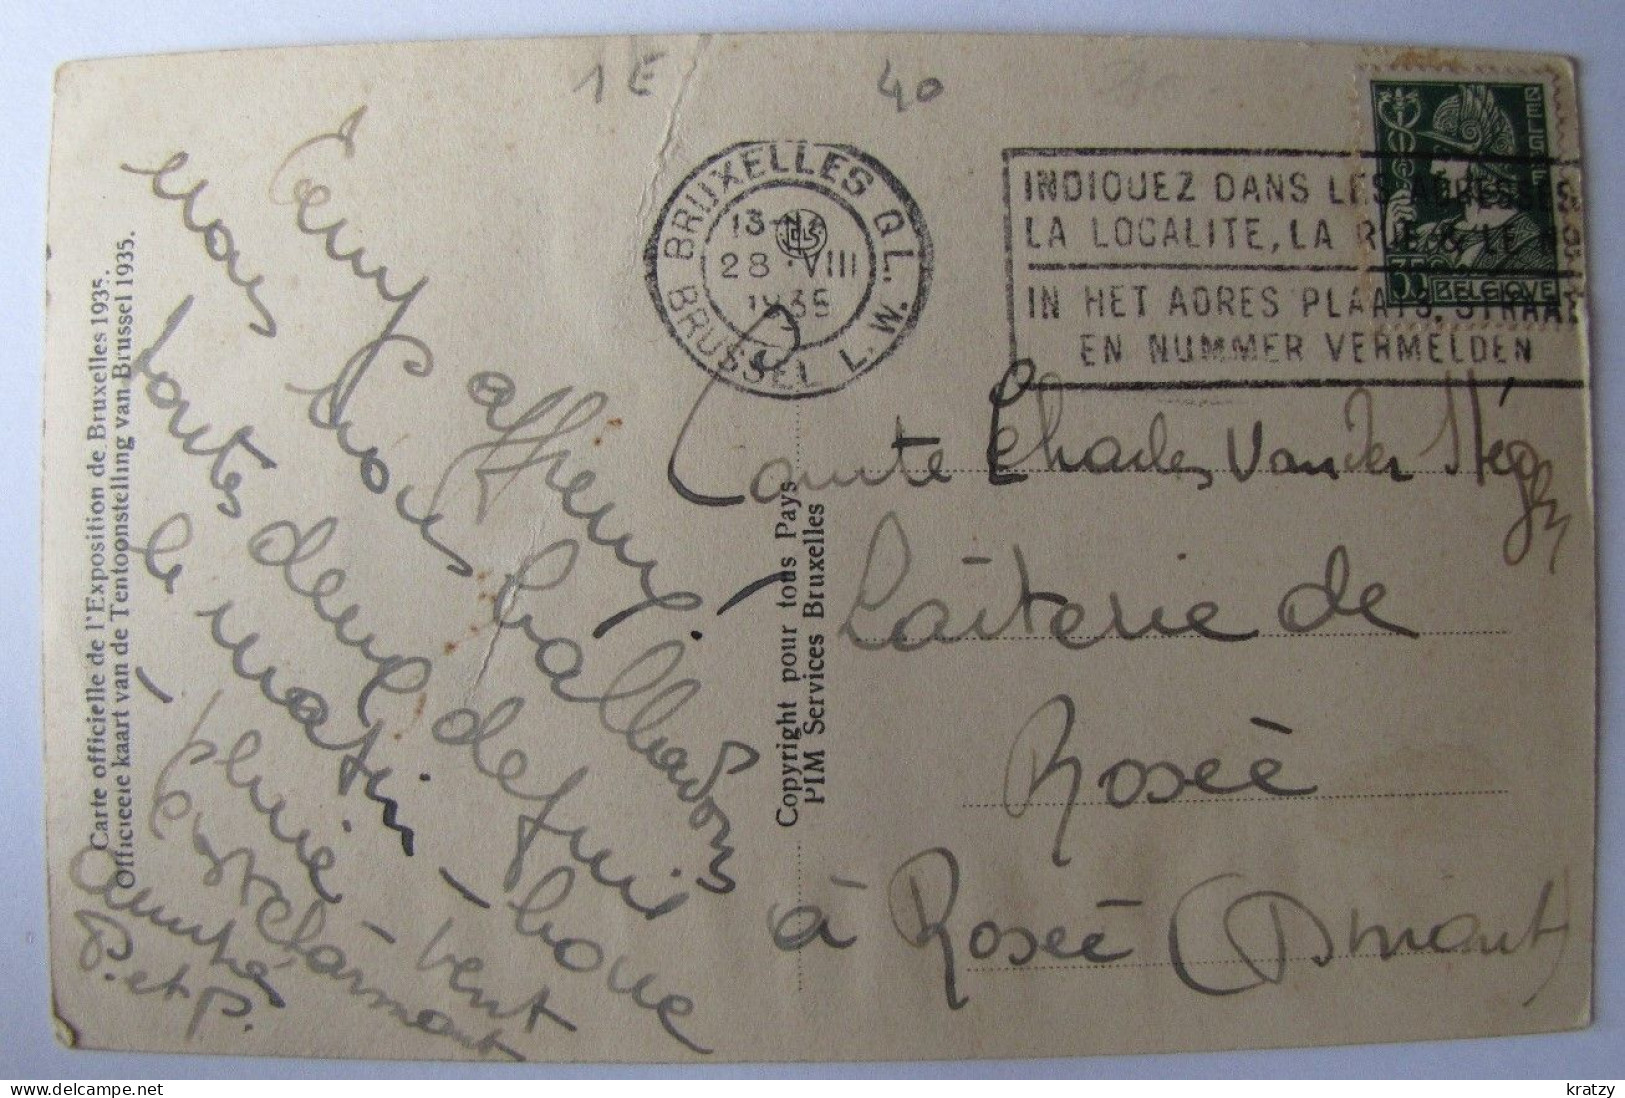 1 E
40
BRUXELLES Q.L.
28 VIII
BRUSSEL L.W.
INDIQUEZ DANS LES ADRESSES
LA LOCALITE, LA RUE & LE N
IN HET ADRES PLAATS, STRAAT
EN NUMMER VERMELDEN
35
BELGIQUE
Carte officielle de l'Exposition de Bruxelles 1935.
Officieele kaart van de Tentoonstelling van Brussel 1935.
Temps affreux!
nous nous balladons
toutes deux depuis
le matin - boue
- pluie - vent
P. et P.
Copyright pour tous Pays
PIM Services Bruxelles
Comte Charles Van der
Laiterie de
Rosée
à Rosée (Dinant)
kratzy
delcampe.net